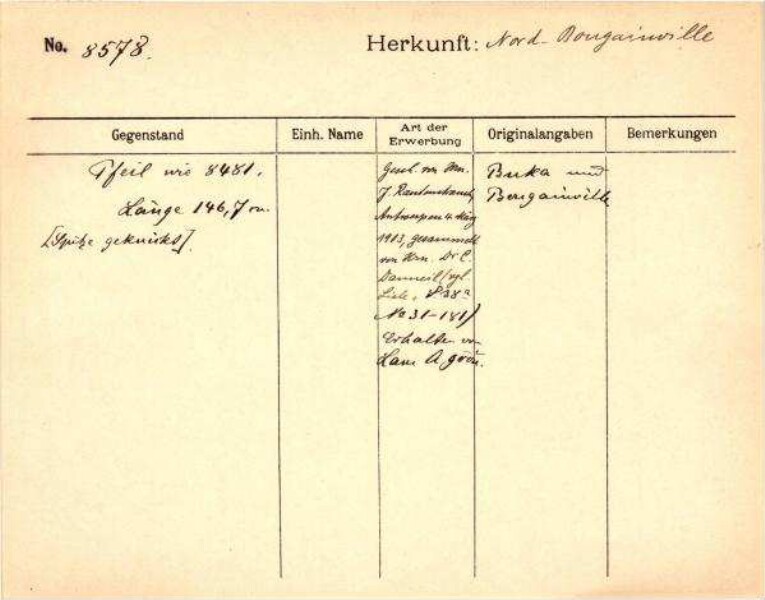 No. 8578.
Herkunft: Nord-Bougainville
Gegenstand
Einh. Name
Art der Erwerbung
Originalangaben
Bemerkungen
Pfeil wie 8481.
Länge 146,7 cm.
[Spitze geknickt].
Gesch. von Hrn.
J.
Antwerpen 4. März
1913, gesammelt
von Hrn. Dr C.
Danneil (vgl.
Liste, 838a
No 31-181)
Erhalten von
Hans A. Grön.
Buka und
Bougainville